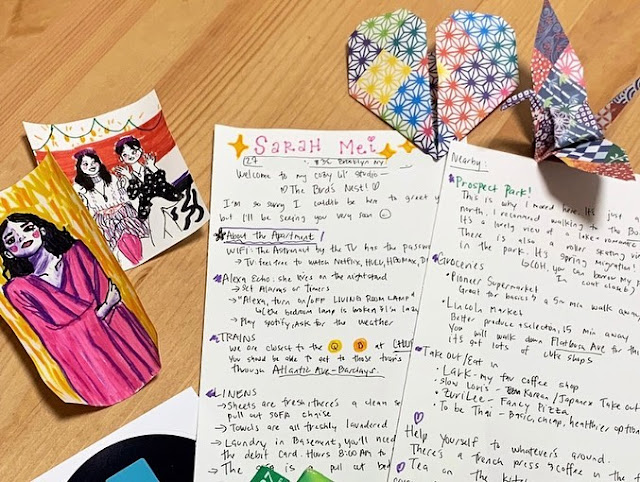 SARAH Mei
27
#3C Brooklyn NY
Welcome to my cozy lil' studio –
The Bird's Nest!
I'm so sorry I couldn't be here to greet y
but I'll be seeing you very soon
About the Apartment!
WIFI: The Astronaut by the TV has the passw
→ TV feel free to watch Netflix, HULU, HBOMAX, Di
Alexa Echo: she lives on the nightstand
→ Set Alarms or Timers
→ "Alexa, turn on/OFF LIVING ROOM LAMP
the bedroom lamp is broken
→ Play spotify, ask for the weather
TRAINS
We are closest to the Q B at
You should be able to get to those trains
through Atlantic Ave-Barclays.
LINENS
→ Sheets are fresh; there's a clean se
pull out sofa chaise
→ Towels are all freshly laundered
→ Laundry in Basement, you'll need
the debit card. Hours 8:00 AM to
→ The is a pull out bed
Nearby:
Prospect Park!
This is why I moved here. It's just
north. I recommend walking to the Bo
It's a lovely view of a lake + romance
There is also a roller skating
in the park. It's spring migration!
can borrow my
in coat closet)
Groceries
• Pioneer Supermarket
Great for basics & a 5 min walk away
• Lincoln Market
Better produce + selection, 15 min away
You will walk down Flatbush Ave for the
it's got lots of cute shops
Take out/Eat in
• Lark - my fav coffee shop
• Slow Loris - Korean/Japanese Take out
• Zurilee - Fancy Pizza
• To be Thai - Basic, cheap, healthier option
Help yourself to whatever's around.
There's a french press & coffee in the f
Tea on the